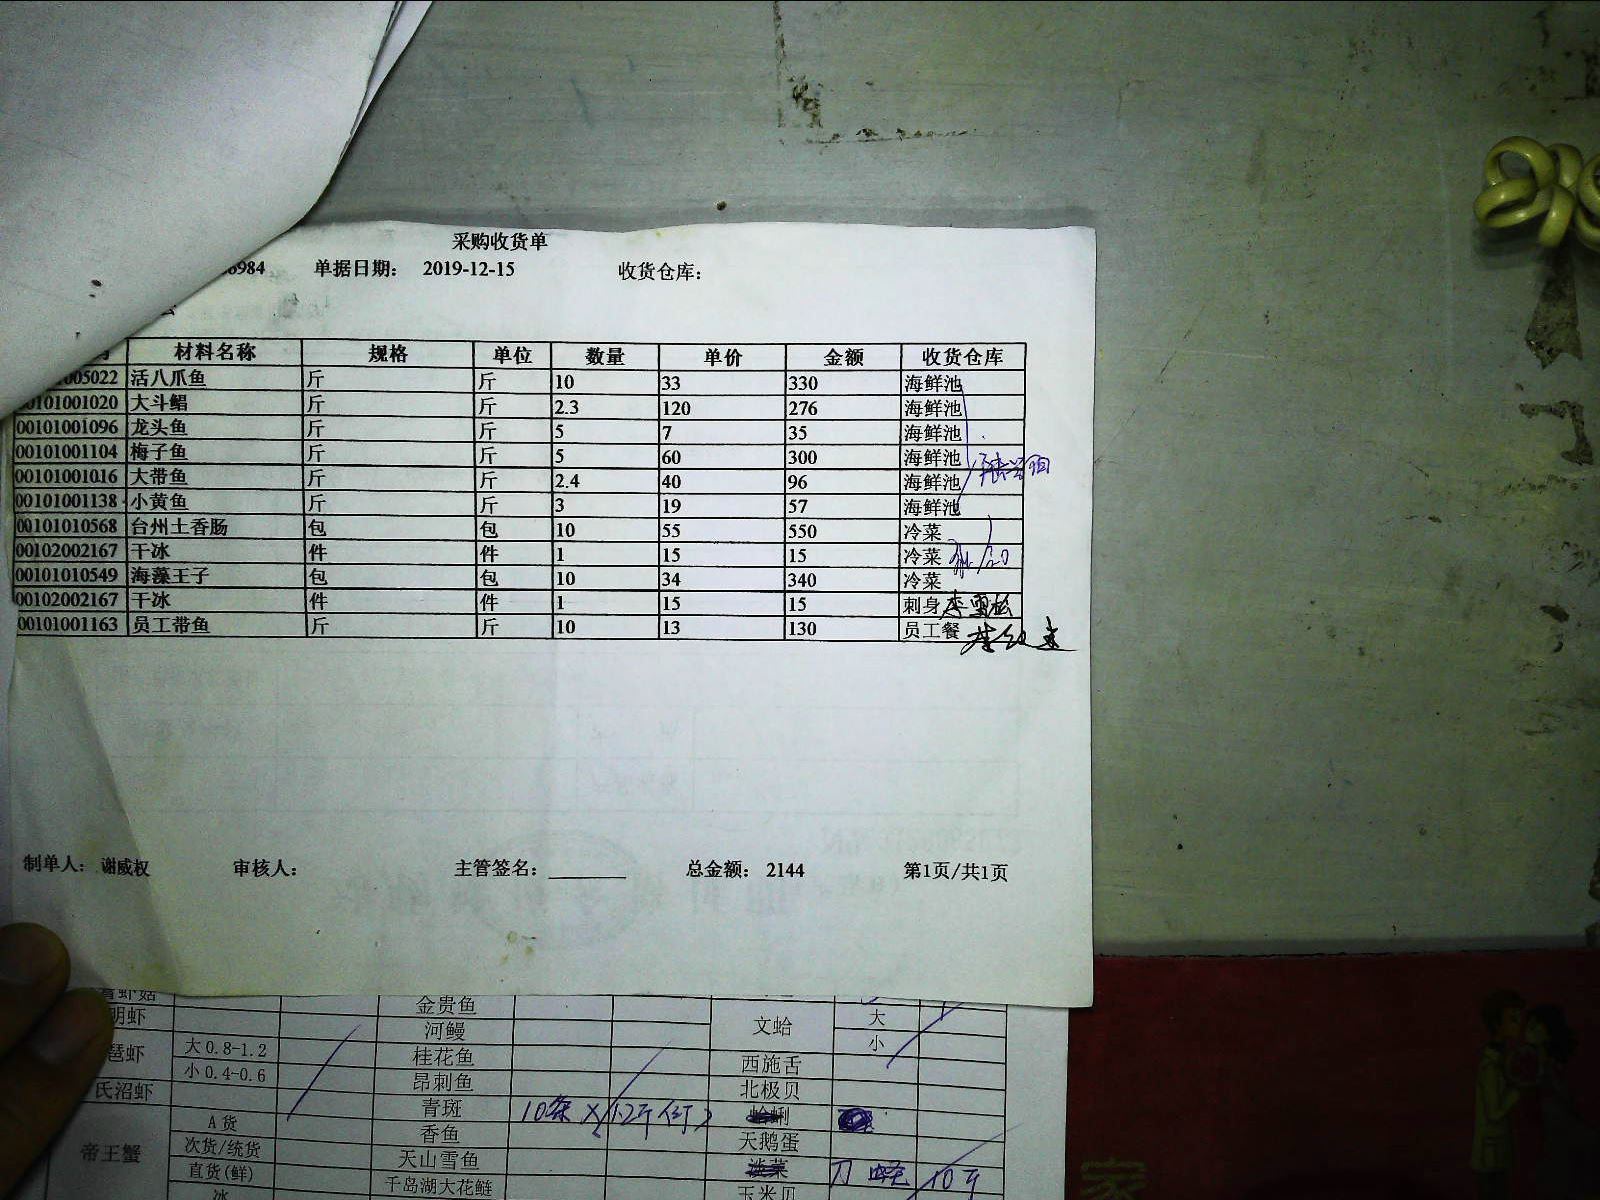 采购收货单
6984 单据日期： 2019-12-15 收货仓库：
材料名称 规格 单位 数量 单价 金额 收货仓库
005022 活八爪鱼 斤 斤 10 33 330 海鲜池
00101001020 大斗鲳 斤 斤 2.3 120 276 海鲜池
00101001096 龙头鱼 斤 斤 5 7 35 海鲜池
00101001104 梅子鱼 斤 斤 5 60 300 海鲜池
00101001016 大带鱼 斤 斤 2.4 40 96 海鲜池
00101001138 小黄鱼 斤 斤 3 19 57 海鲜池
00101010568 台州土香肠 包 包 10 55 550 冷菜
00102002167 干冰 件 件 1 15 15 冷菜
00101010549 海藻王子 包 包 10 34 340 冷菜
00102002167 干冰 件 件 1 15 15 刺身
00101001163 员工带鱼 斤 斤 10 13 130 员工餐
制单人： 谢威权 审核人： 主管签名： 总金额： 2144 第1页/共1页
青虾菇 金贵鱼
明虾 河鳗 文蛤 大
小
琶虾 大0.8-1.2 桂花鱼 西施舌
小0.4-0.6 昂刺鱼 北极贝
氏沼虾 青斑 10条
帝王蟹 A货 香鱼 天鹅蛋
次货/统货 天山雪鱼 10斤
直货(鲜) 千岛湖大花鲢 玉米贝
冰
家